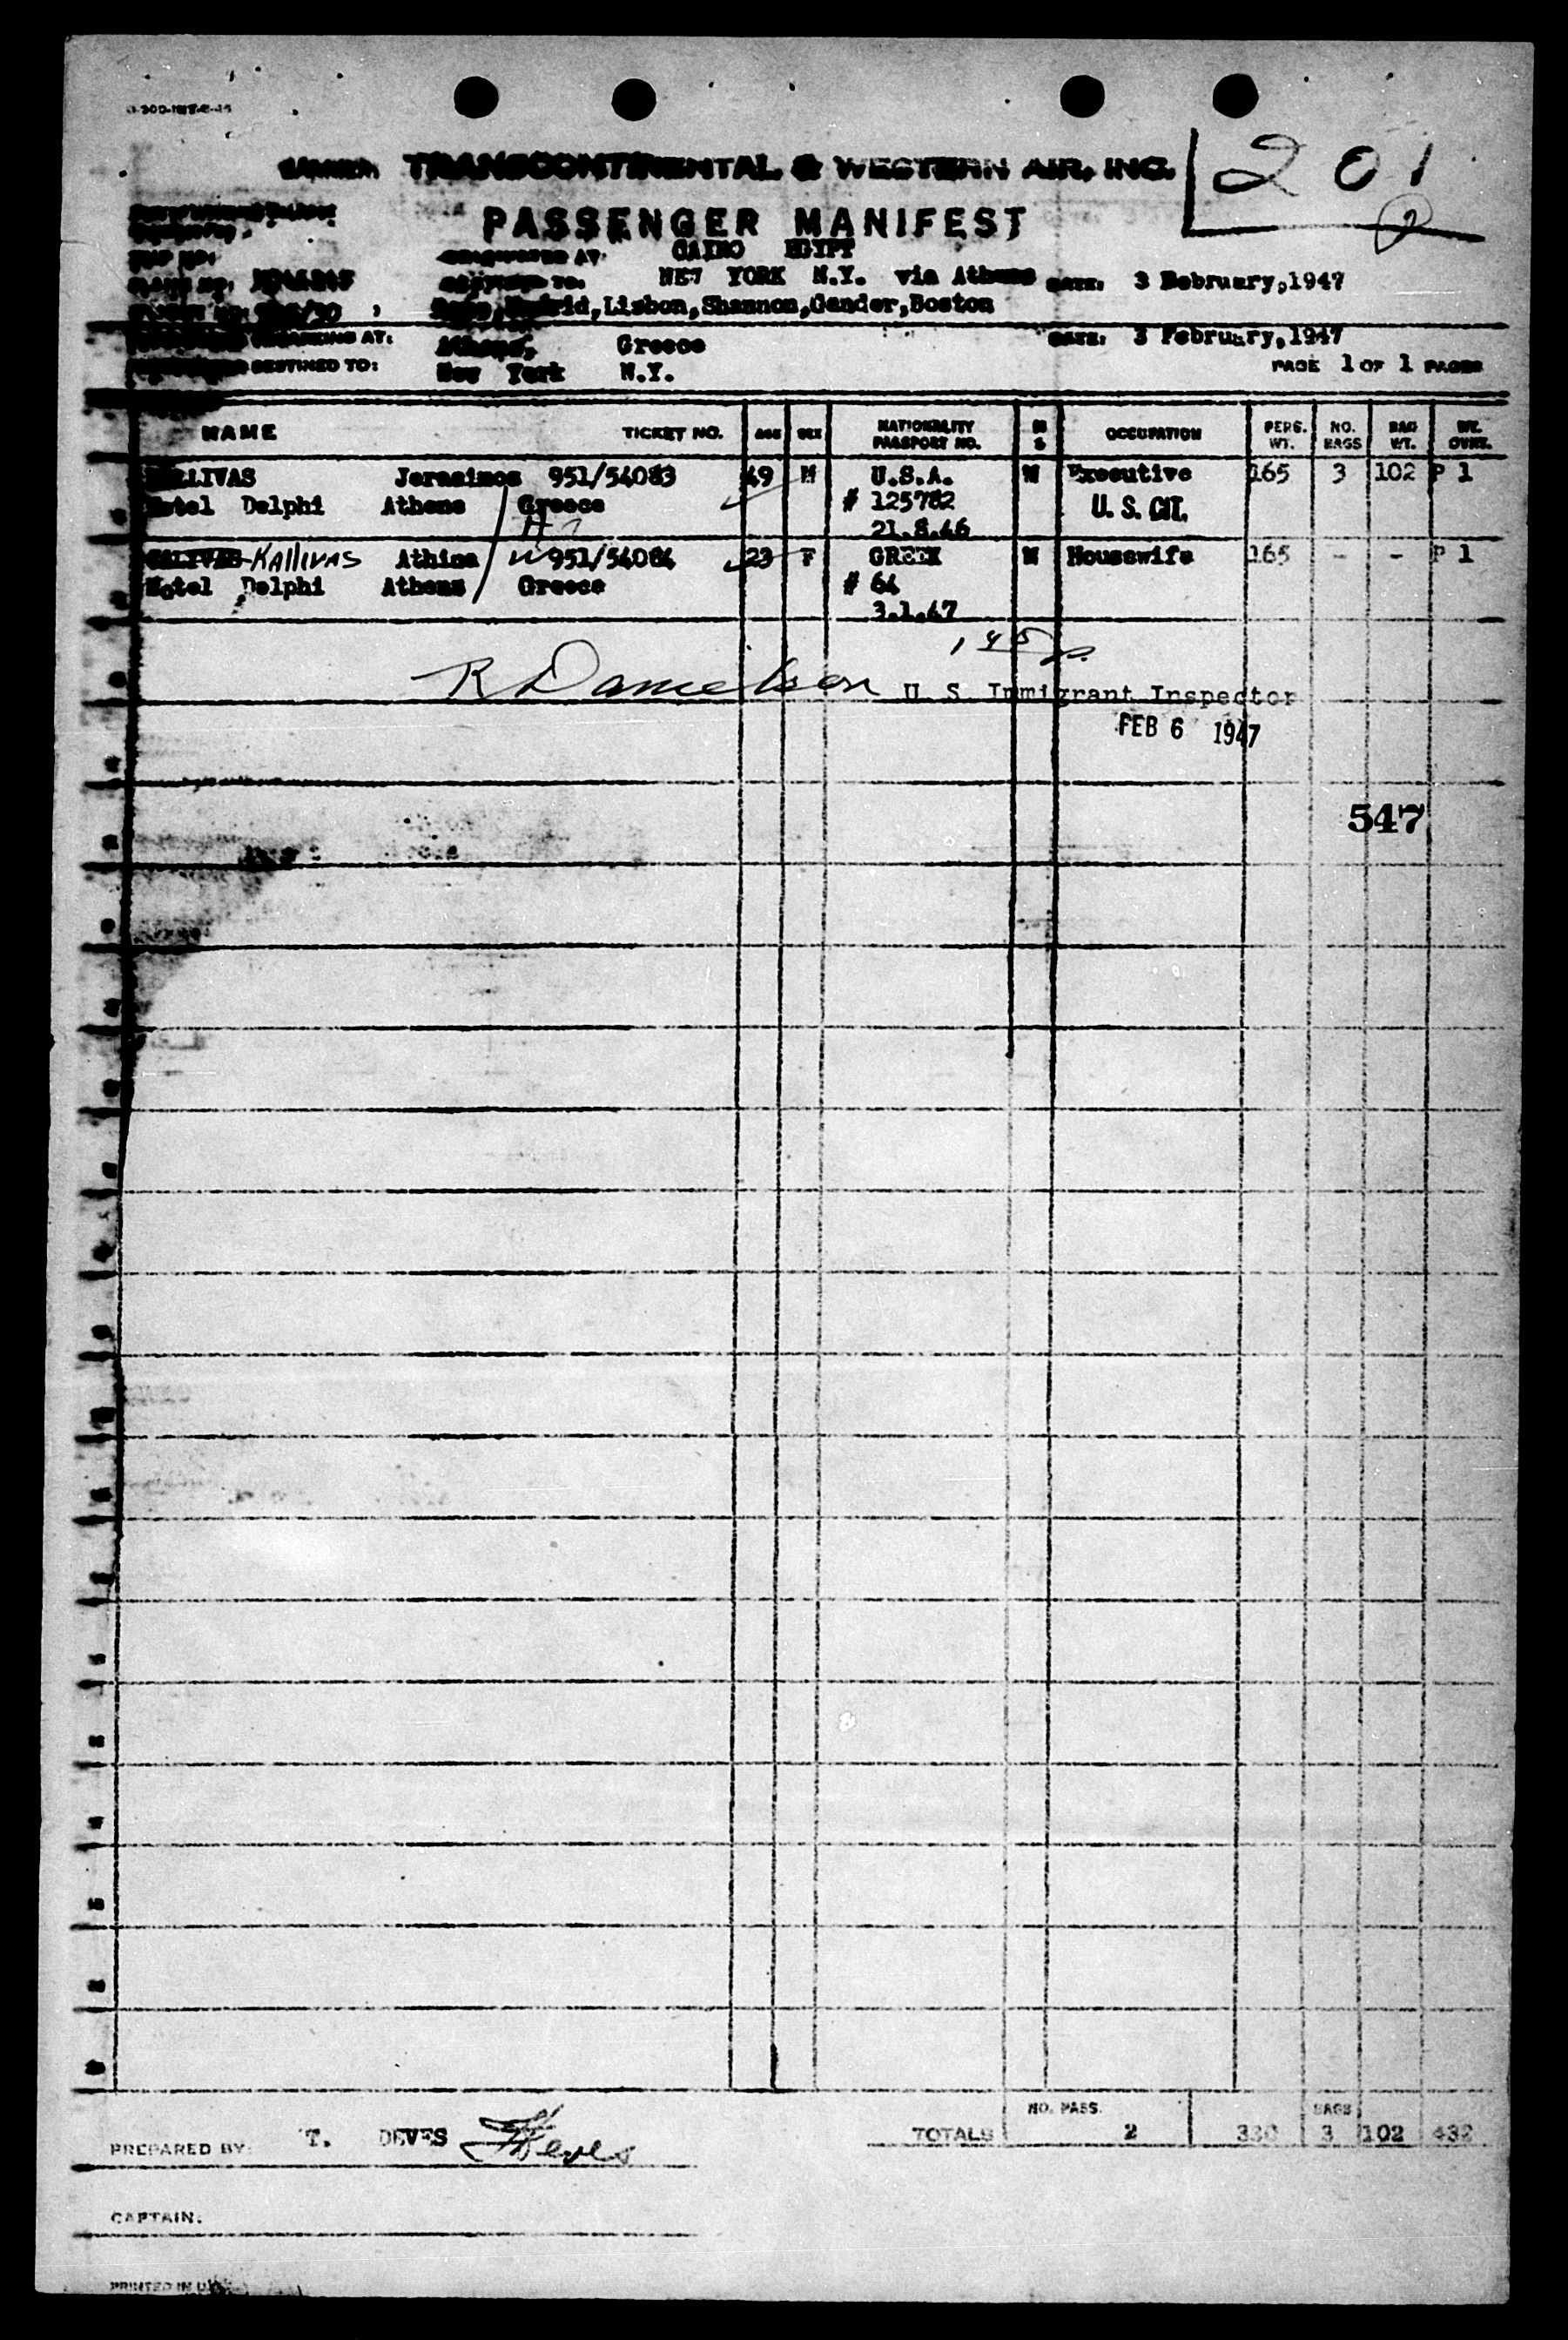 TRANSCONTINENTAL & WESTERN AIR, INC.
201
2
PASSENGER MANIFEST
CAIRO EGYPT
NEW YORK N.Y. via Athens DATE: 3 February,1947
Madrid,Lisbon,Shannon,Gander,Boston
Athens, Greece DATE: 3 February,1947
DESTINED TO: New York N.Y. PAGE 1 OF 1 PAGES
NAME TICKET NO. AGE SEX NATIONALITY PASSPORT NO. M S OCCUPATION PERS. WT. NO. BAGS BAG WT. WT. OVRT.
Jerasimos 951/54083 49 M U.S.A. M Executive 165 3 102 P 1
Hotel Delphi Athens Greece # 125782 U. S. CIT.
21.8.46
Kallivas Athina 951/54084 23 F GREEK M Housewife 165 - - P 1
Hotel Delphi Athens Greece # 64
3.1.47
R Danielson U. S. Immigrant Inspector
FEB 6 1947
547
NO. PASS. BAGS
PREPARED BY: T. DEVES TDeves TOTALS 2 330 3 102 432
CAPTAIN:
PRINTED IN U.S.